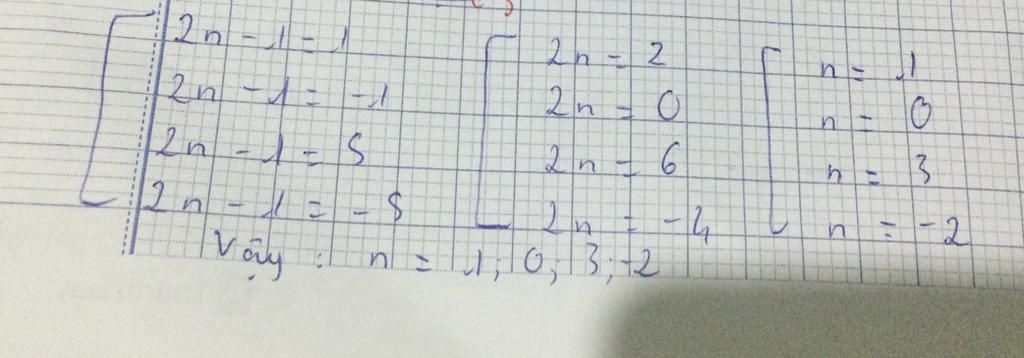 2n - 1 = 1 2n = 2 n = 1
2n - 1 = -1 2n = 0 n = 0
2n - 1 = 5 2n = 6 n = 3
2n - 1 = -5 2n = -4 n = -2
Vậy : n = 1; 0; 3; -2